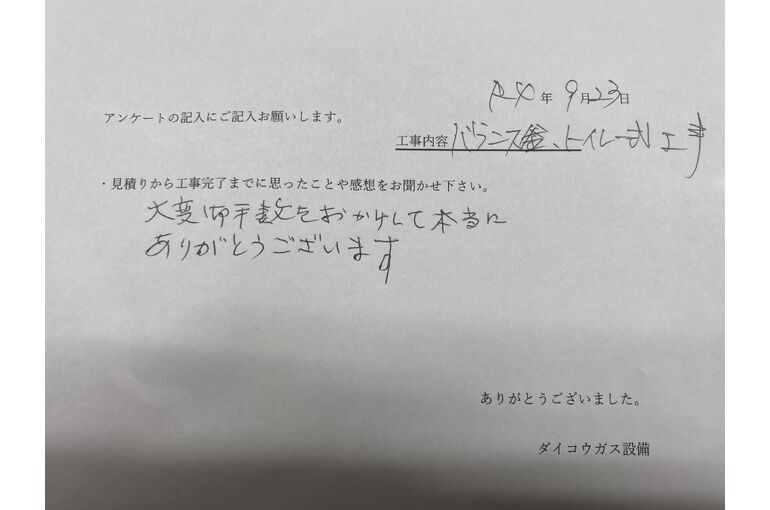 年 9月23日
アンケートの記入にご記入お願いします。
工事内容 バランス釜、トイレ一式工事
・見積りから工事完了までに思ったことや感想をお聞かせ下さい。
大変御手数をおかけして本当に
ありがとうございます
ありがとうございました。
ダイコウガス設備